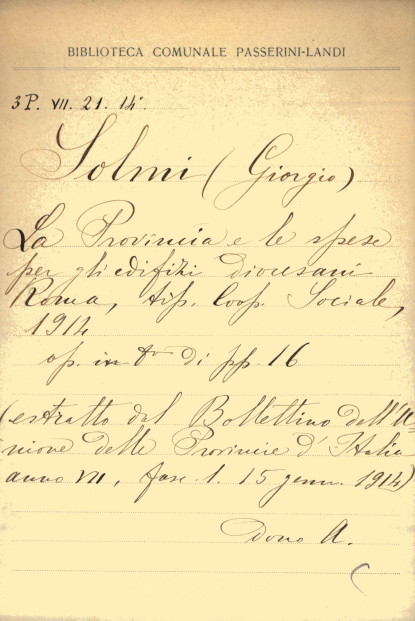 BIBLIOTECA COMUNALE PASSERINI-LANDI
3 P. VII. 21. 14°
Solmi (Giorgio)
La Provincia e le spese
per gli edifizi diocesani
Roma, tip. Coop. Sociale,
1914
op. in 8° di pp. 16
(estratto dal Bollettino dell'U-
nione delle Provincie d'Italia
anno VII, fasc. 1. 15 genn. 1914)
Dono A.